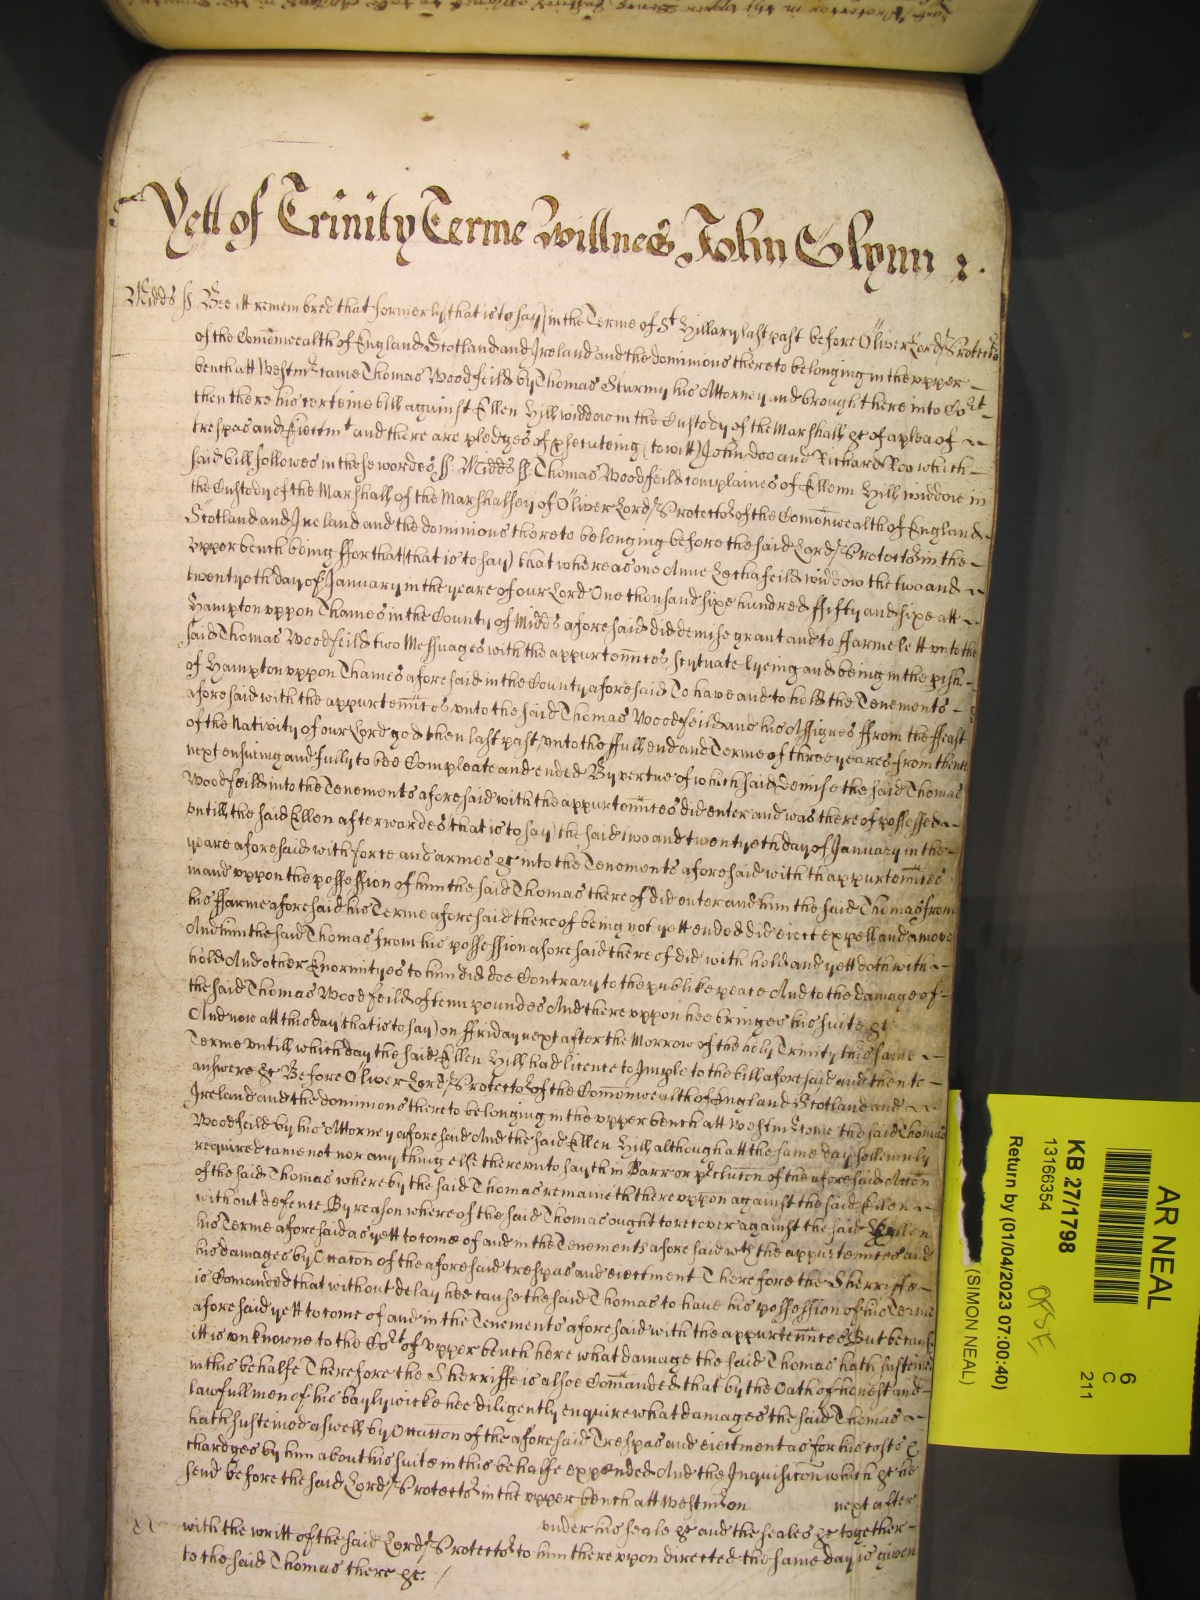 Yett of Trinity Terme Wittnes John Glynn
Midds ss Bee itt remembred that formerly (that is to say) in the Terme of St Hillary last past before Oliver Lord Protector
of the Comonwealth of England Scotland and Ireland and the dominions thereto belonging in the upper
bench att Westmr came Thomas Woodfeild by Thomas Sturmy his Attorney and brought here into Cort
then there his certeine bill against Ellen Hill widdow in the Custody of the Marshall &c of a plea of
trespas and Eiectmt and there are pledges of prsecuteing (to witt) John Doo and Richard Roo which
said bill followes in these wordes ss Midds ss Thomas Woodfeild complaines of Ellenn Hill widdow in
the Custody of the Marshall of the Marshalsey of Oliver Lord Protector of the Comonwealth of England
Scotland and Ireland and the dominions thereto belonging before the said Lord Protector in the
upper bench being ffor that (that is to say) that whereas one Anne widdow the two and
twentyeth day of January in the yeare of our Lord One thousand sixe hundred ffifty and sixe att
Hampton uppon Thames in the County of Midds aforesaid did demise grant and to ffarme lett unto the
said Thomas Woodfeild two Messuages with the appurtennces scytuate lyeing and being in the pish
of Hampton uppon Thames aforesaid in the County aforesaid To have and to hold the Tenements
aforesaid with the appurtennces unto the said Thomas Woodfeild and his Assignes ffrom the ffeast
of the Nativity of our Lord god then last past unto the ffull end and Terme of three yeares from thence
next ensueing and fully to bee Compleate and ended By vertue of which said demise the said Thomas
Woodfeild into the Tenements aforesaid with the appurtennces did enter and was thereof possessed
untill the said Ellen afterwardes (that is to say) the said two and twentyeth day of January in the
yeare aforesaid with force and armes &c into the Tenements aforesaid with thappurtennces
in and uppon the possession of him the said Thomas thereof did enter and him the said Thomas from
his ffarme aforesaid his Terme aforesaid thereof being not yett ended did eiect expell and amove
And him the said Thomas from his possession aforesaid thereof did with hold and yett doth with
hold And other Enormityes to him did doe Contrary to the publike peace And to the damage of
the said Thomas Woodfeild of tenn poundes And thereuppon hee bringes his suite &c
And now att this day (that is to say) on ffriday next after the Morrow of the holy Trinity this same
Terme untill which day the said Ellen Hill had licence to Imple to the bill aforesaid and then to
answere &c Before Oliver Lord Protector of the Comonwealth of England Scotland and
Ireland and the dominions thereto belonging in the upper bench att Westmr come the said Thomas
Woodfeild by his Attorney aforesaid And the said Ellen Hill although att the same day sollemnly
required came not nor any thing else thereunto sayth in Barr or preclucon of the aforesaid Accon
of the said Thomas whereby the said Thomas remaineth thereuppon against the said Ellen
without defence By reason whereof the said Thomas ought to recover against the said Ellen
his Terme aforesaid as yett to come of and in the Tenements aforesaid wth the appurtennces and
his damages by Occacon of the aforesaid trespas and eiectment Therefore the Sherriffe
is Comanded that without delay hee cause the said Thomas to have his possession of his Terme
aforesaid yett to come of and in the Tenements aforesaid with the appurtennces But because
itt is unknowne to the Cort of upper bench here what damage the said Thomas hath susteined
in this behalfe Therefore the Sherriffe is alsoe Comanded that by the Oath of honest and
lawfull men of his baylywicke hee diligently enquire what damages the said Thomas
hath susteined aswell by Occation of the aforesaid Trespas and eiectment as for his costs &
chardges by him about his suite in this behalfe expended And the Inquisicon which &c he
send before the said Lord Protector in the upper bench att Westmr on next after
under his seale &c and the seales &c together
with the writt of the said Lord Protector to him thereuppon directed the same day is given
to the said Thomas there &c.
AR NEAL
6
C
211
KB 27/1798
13166354
OPSF
Return by (01/04/2023 07:00:40)
(SIMON NEAL)